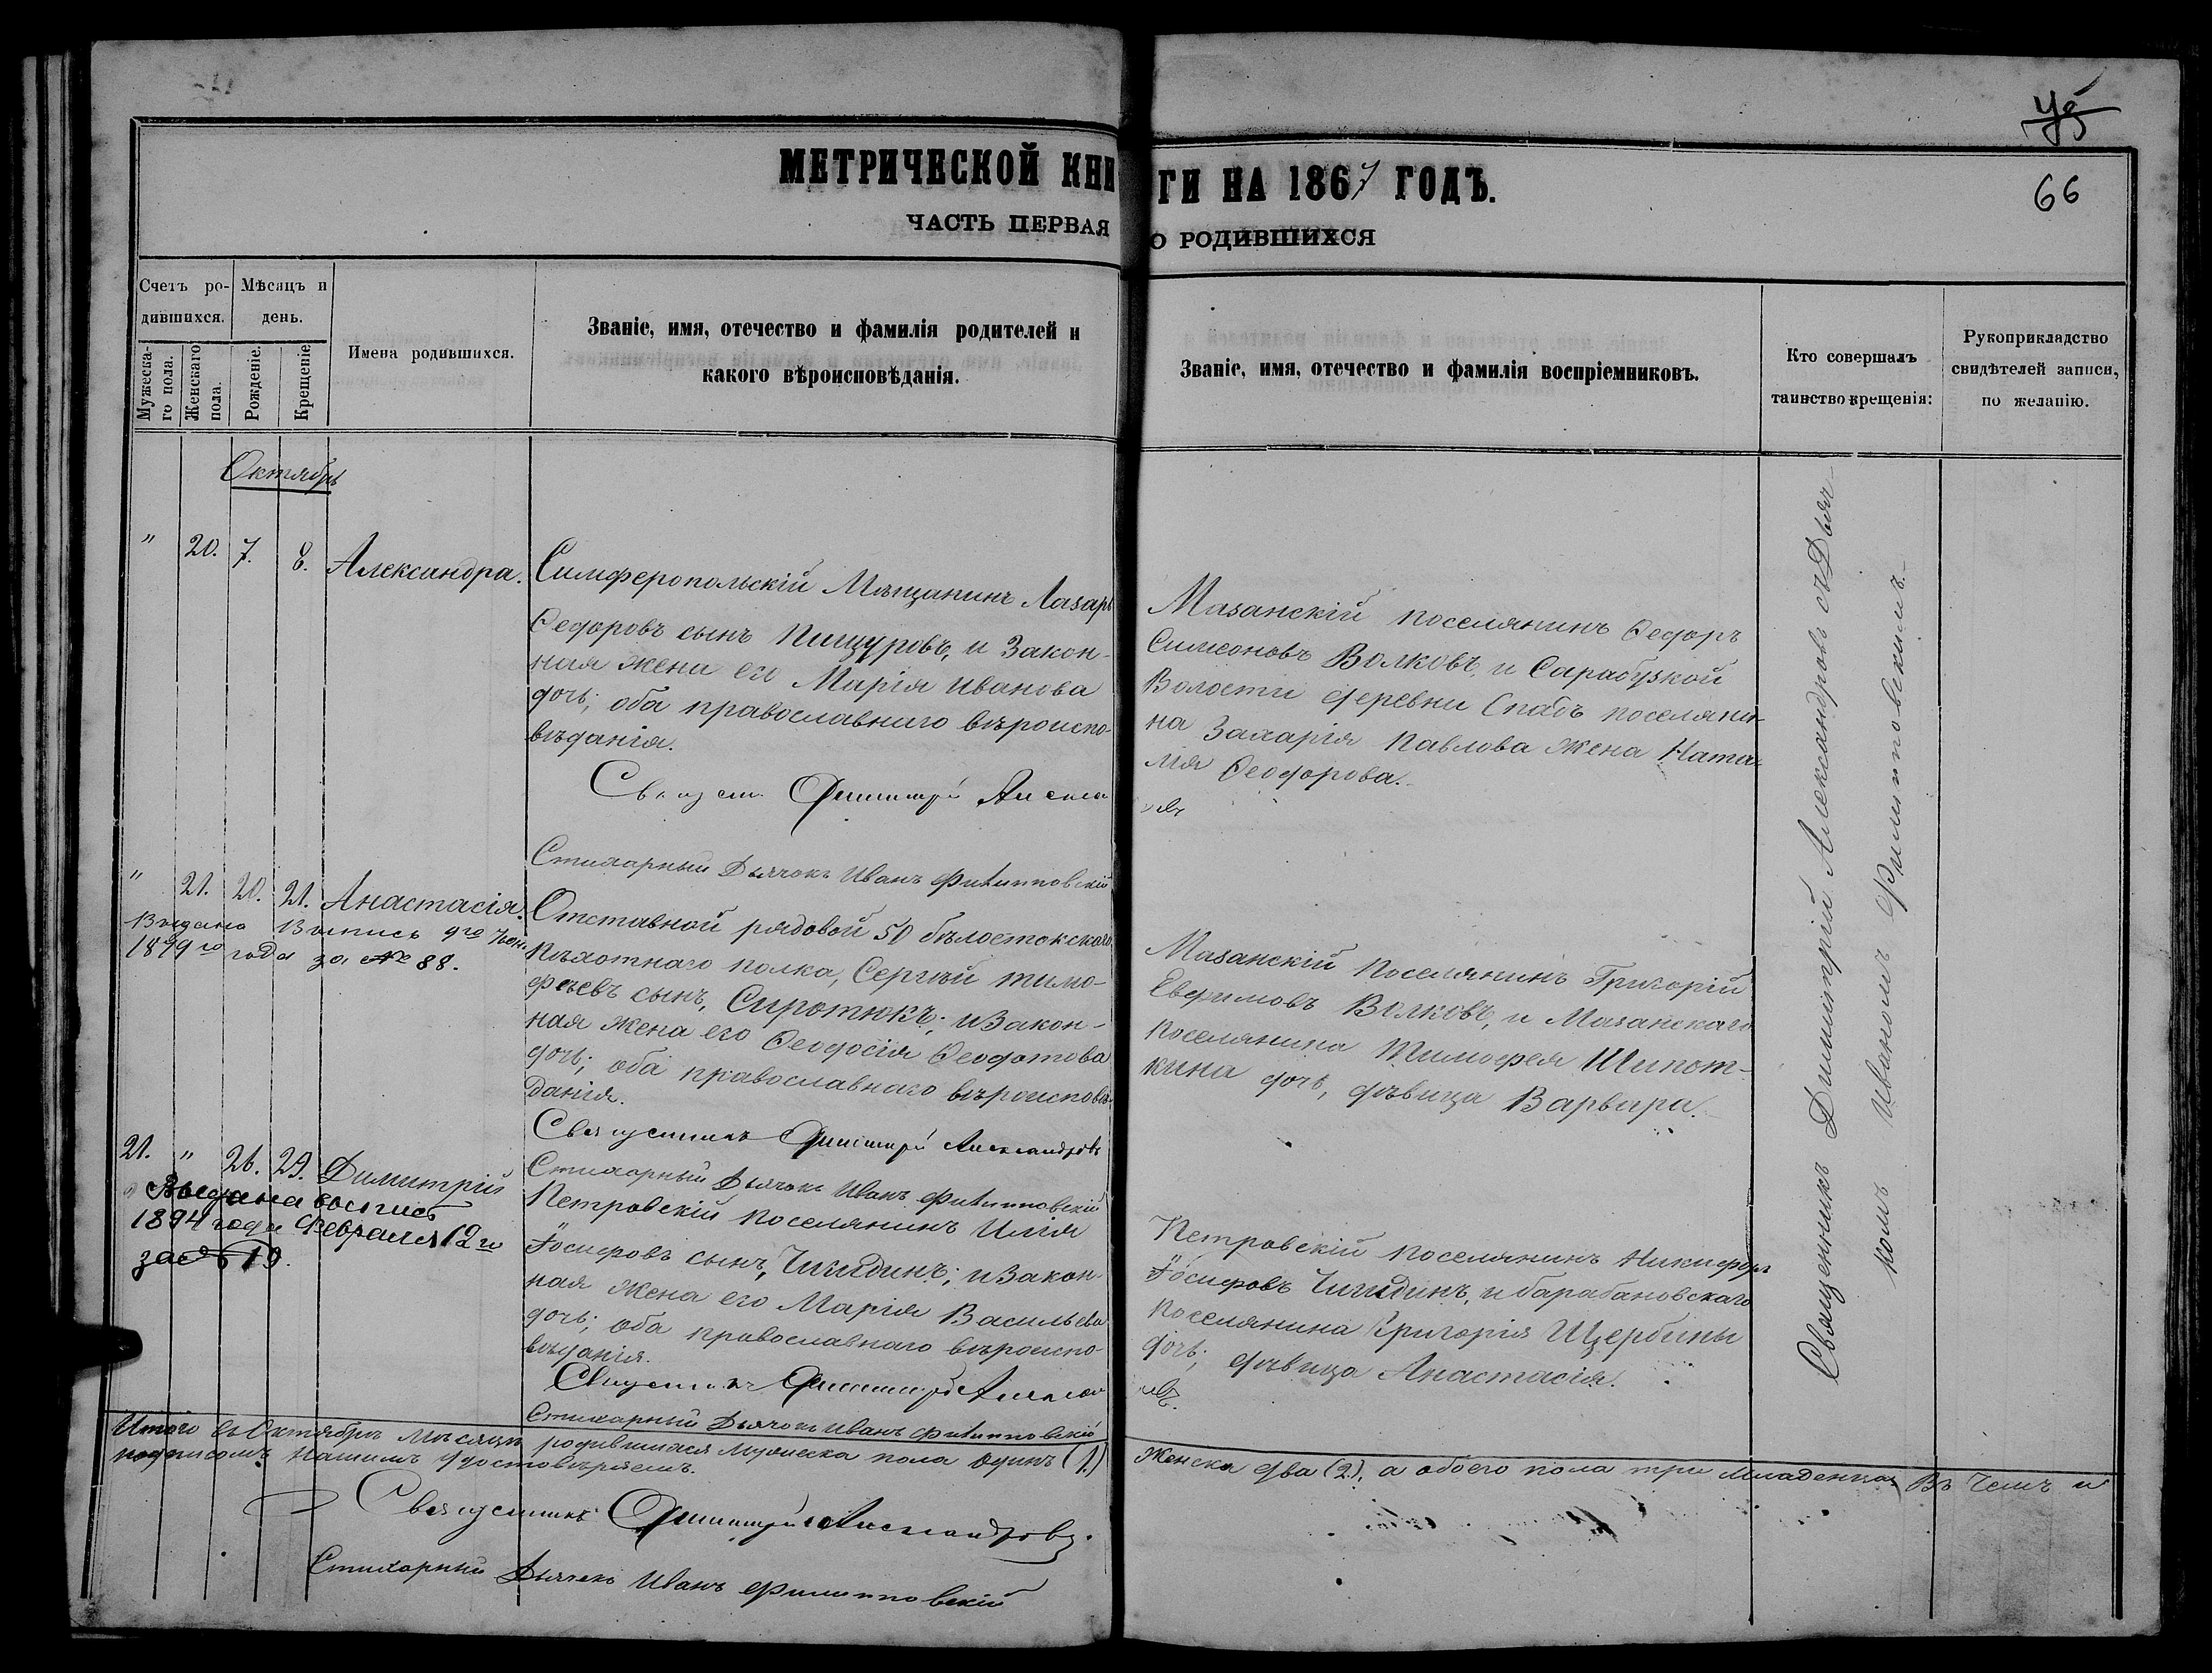 МЕТРИЧЕСКОЙ КНИГИ НА 1867 ГОДЪ.
ЧАСТЬ ПЕРВАЯ О РОДИВШИХСЯ
66
Счетъ родившихся.
Мужескаго пола.
Женскаго пола.
Мѣсяцъ и день.
Рожденіе.
Крещеніе
Имена родившихся.
Званіе, имя, отечество и фамилія родителей и
какого вѣроисповѣданія.
Званіе, имя, отечество и фамилія воспріемниковъ.
Кто совершалъ
таинство крещенія:
Рукоприкладство
свидѣтелей записи,
по желанію.
Октябрь
" 20. 7. 8. Александра.
Симферопольскій Мѣщанинъ Лазарь
Ѳедоровъ сынъ Пищуровъ, и Закон-
ная жена его Марія Иванова
дочь; оба православнаго вѣроиспо-
вѣданія.
Мазанскій поселянинъ Ѳедоръ
Симеоновъ Волковъ, и Сарабузской
Волости деревни Спатъ поселяни-
на Захарія Павлова жена Ната-
лія Ѳеодорова.
Стихарный Дьячокъ Иванъ Филипповскій
" 21. 20. 21. Анастасія.
1899го года за № 88.
Отставной рядовой 50 бѣлостокскаго
Пѣхотнаго полка, Сергѣй Тимо-
фѣевъ сынъ, Сиротюкъ; и Закон-
ная жена его Ѳеодосія Ѳеодотова
дочь; оба православнаго вѣроисповѣ-
данія.
Мазанскій Поселянинъ Григорій
Евфимовъ Волковъ, и Мазанскаго
поселянина Тимофея Шипот-
кина дочь, дѣвица Варвара.
Священникъ Димитрій Александровъ
Стихарный Дьячокъ Иванъ Филипповскій
21. " 26. 29. Димитрій
Выдана выпись
1894 года Февраля 12го
за № 19.
Петровскій поселянинъ Илія
Іосифовъ сынъ, Чикидинъ; и Закон-
ная жена его Марія Васильева
дочь; оба православнаго вѣроиспо-
вѣданія.
Петровскій поселянинъ Никифоръ
Іосифовъ Чикидинъ, и барабановскаго
поселянина Григорія Щербины
дочь; дѣвица Анастасія.
Стихарный Дьячокъ Иванъ Филипповскій
Священникъ Димитрій Александровъ съ Дьяч-
комъ Иваномъ Филипповскимъ.
Итого въ Октябрѣ мѣсяцѣ родившихся мужеска пола одинъ (1.) женска два (2.), а обоего пола три младенца, Въ чемъ и
подписомъ нашимъ удостовѣряемъ.
Священникъ Димитрій Александровъ.
Стихарный Дьячекъ Иванъ Филипповскій